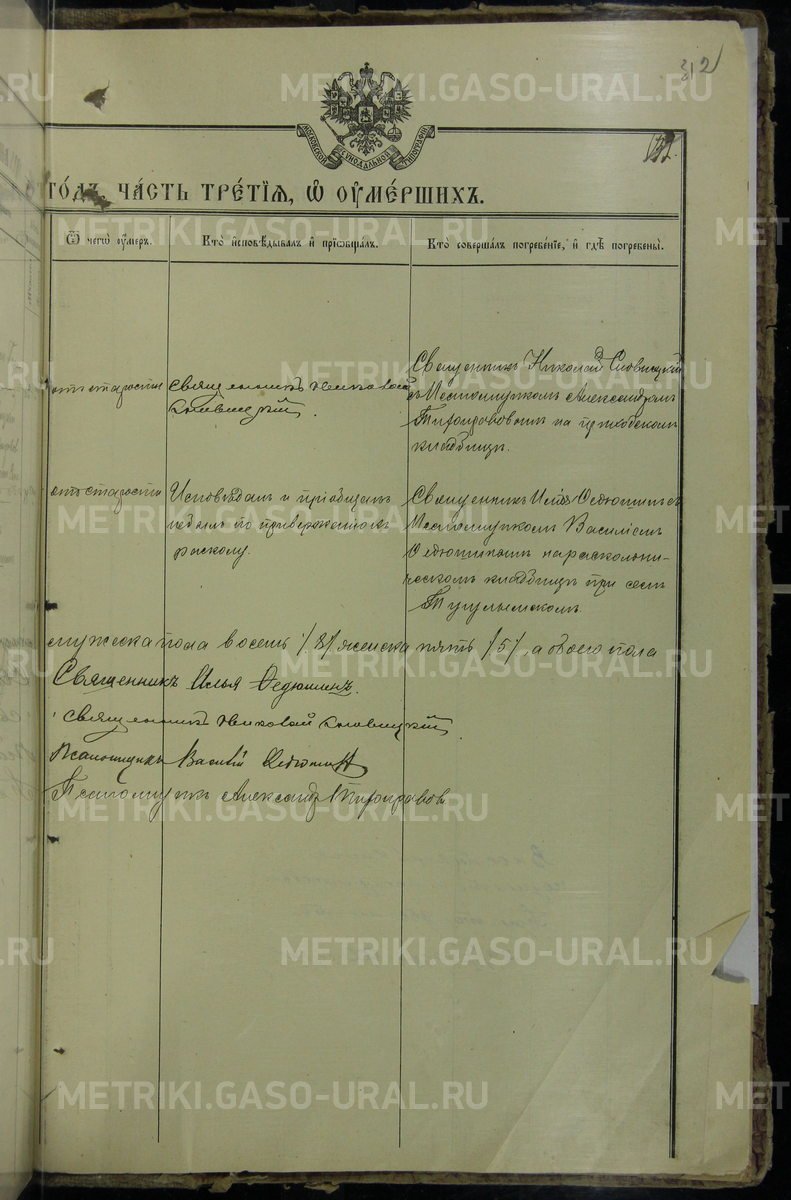 312
МОСКОВСКОЙ СѴНОДАЛЬНОЙ ТИПОГРАФІИ
го́дъ, ча́сть тре́тїѧ, ѽ оу҆ме́ршихъ.
Ѿ чегѡ̀ оу҆́меръ.
Кто̀ и҆сповѣ́дывалъ и҆ прїѡбща́лъ.
Кто̀ соверша́лъ погребе́нїе, и҆ гдѣ̀ погребены̀.
отъ старости
Священникъ Николай
Словецкій.
Священникъ Николай Словецкій
съ Псаломщикомъ Александромъ
на приходскомъ
кладбищѣ.
отъ старости
Исповѣданъ и пріобщенъ
не былъ по приверженности
расколу.
Священникъ Илья Ѳедюшинъ съ
Псаломщикомъ Василіемъ
Ѳедюшинымъ на раскольни-
ческомъ кладбищѣ при селѣ
Тугулымскомъ.
мужеска пола восемь /8/ женска пять /5/, а обоего пола
Священникъ Илья Ѳедюшинъ.
Священникъ Николай Словецкій.
Псаломщикъ Василій Ѳедюшин
Псаломщикъ Александръ
METRIKI.GASO-URAL.RU